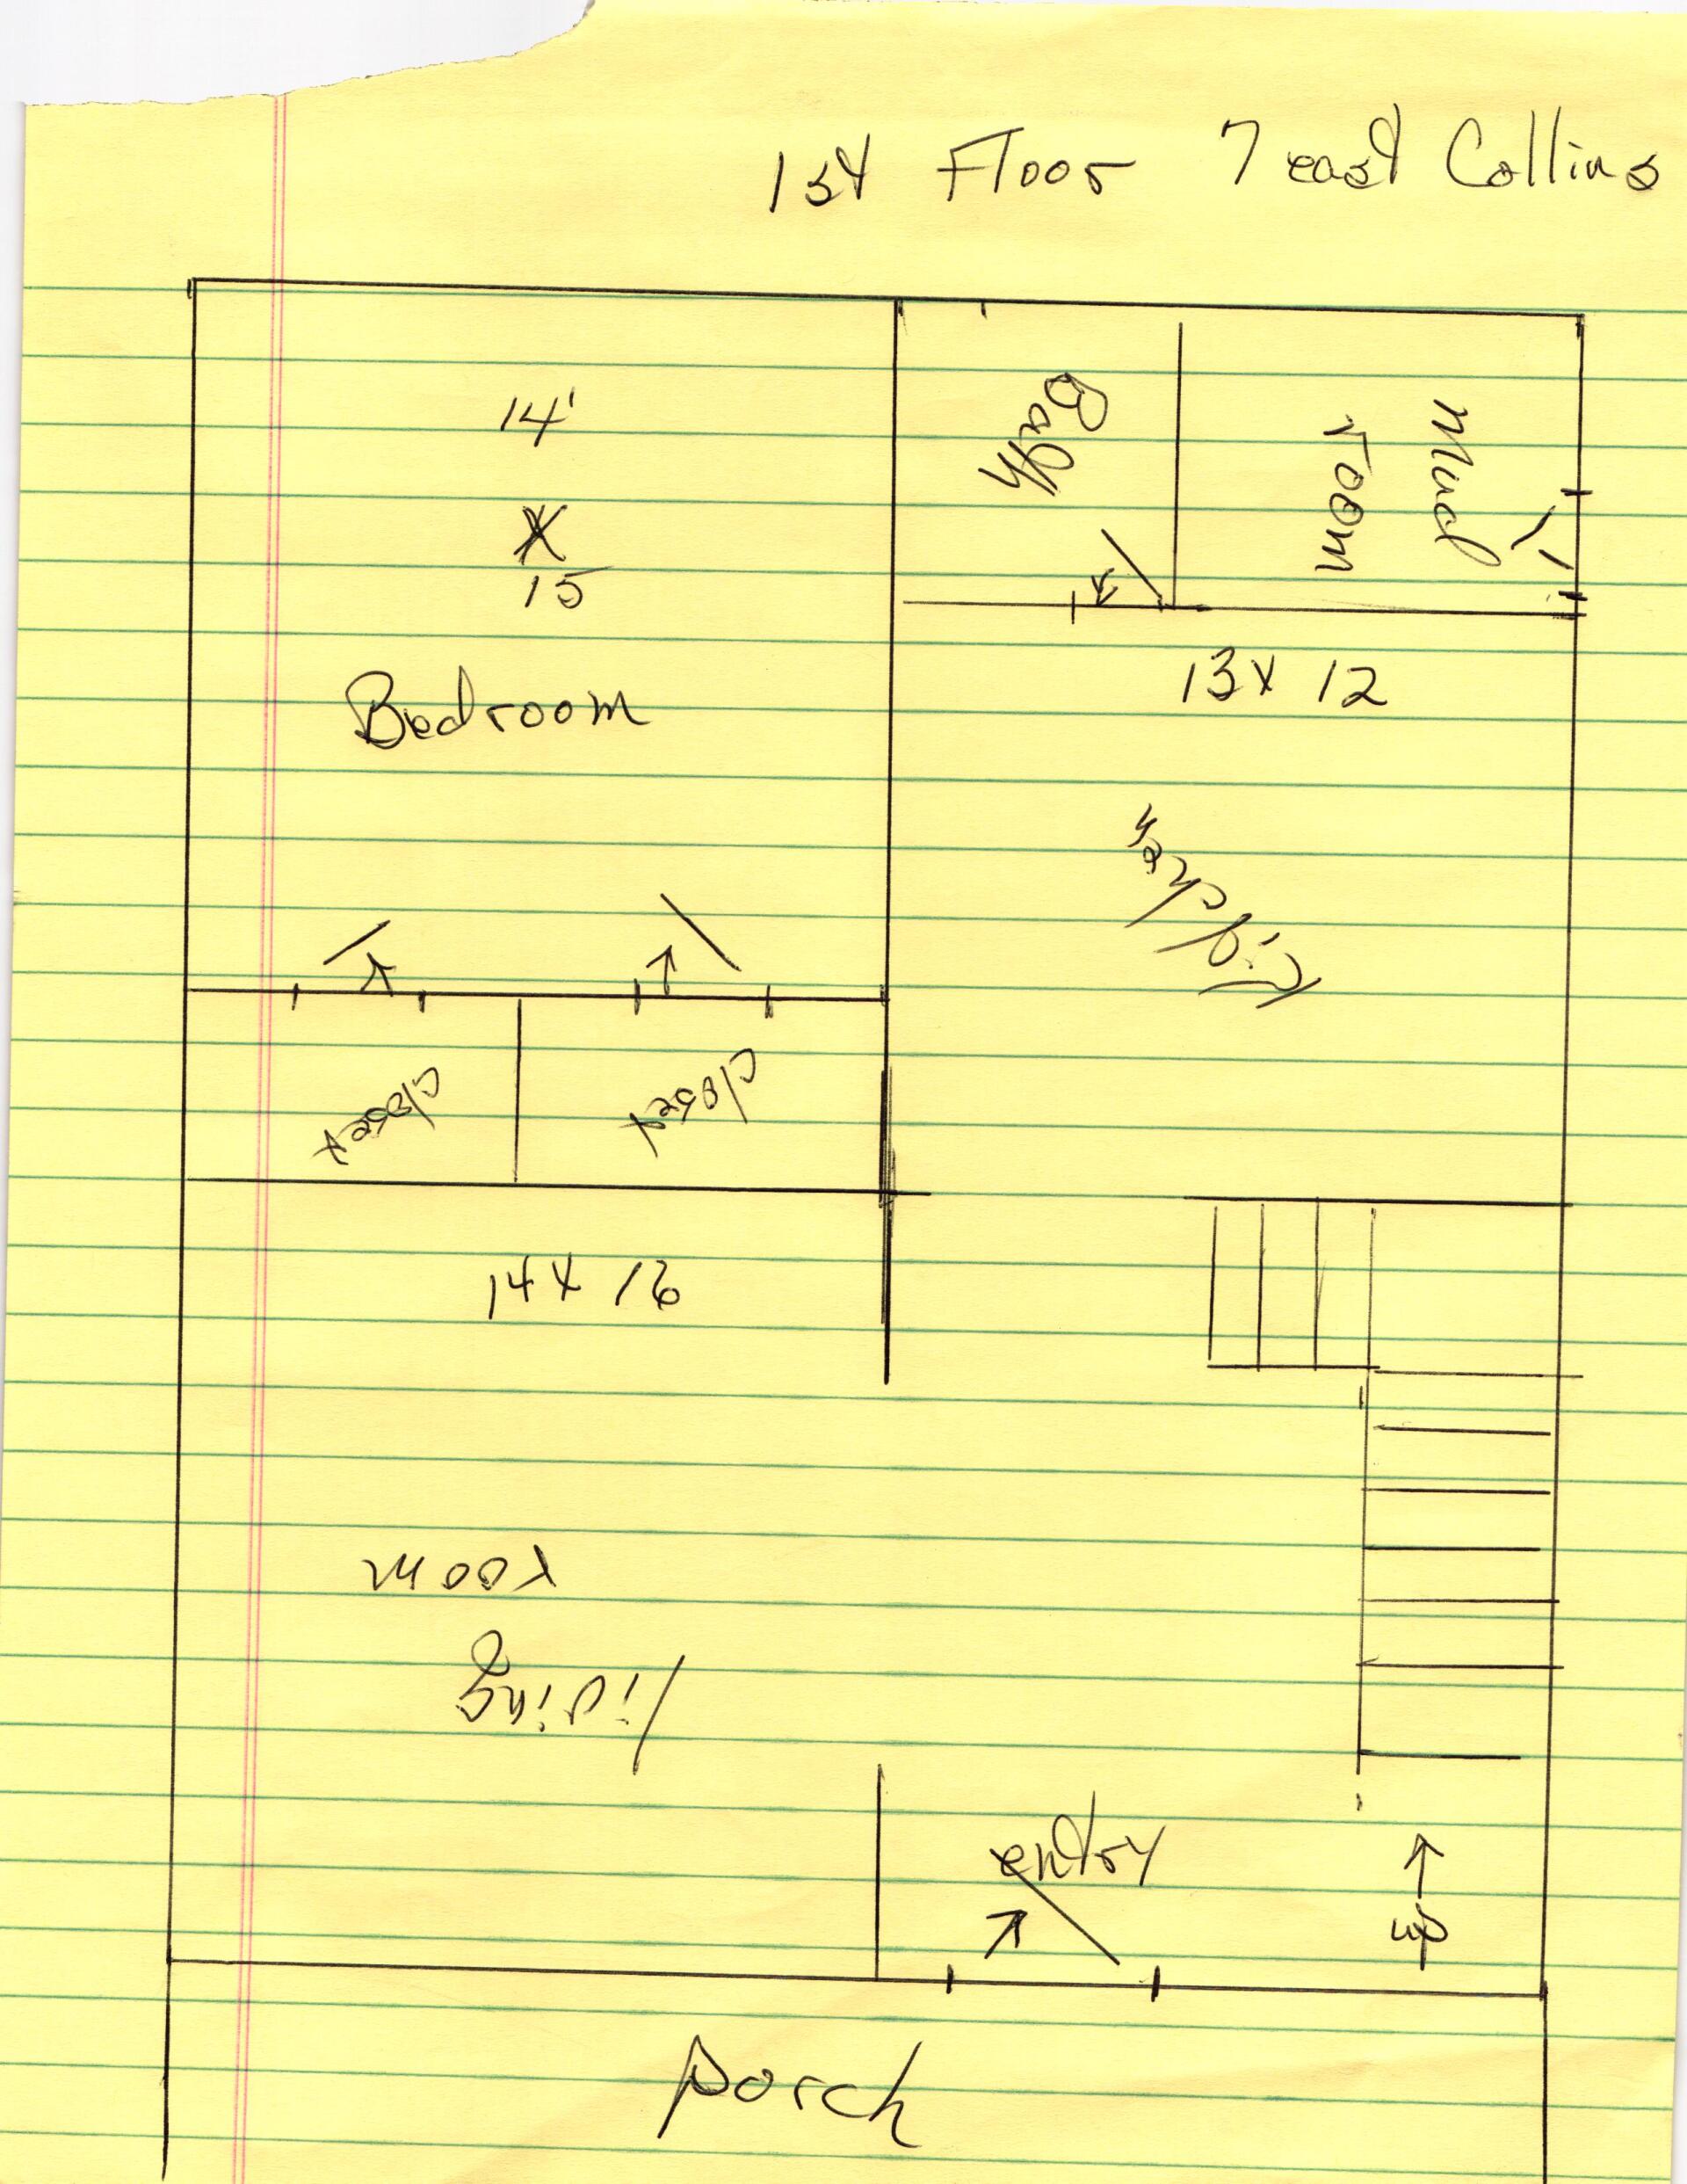 1st Floor 7 east Collins
14'
X
15
Bedroom
Bath
Mud
room
13 x 12
Kitchen
closet
closet
14 x 16
living
room
entry
up
porch